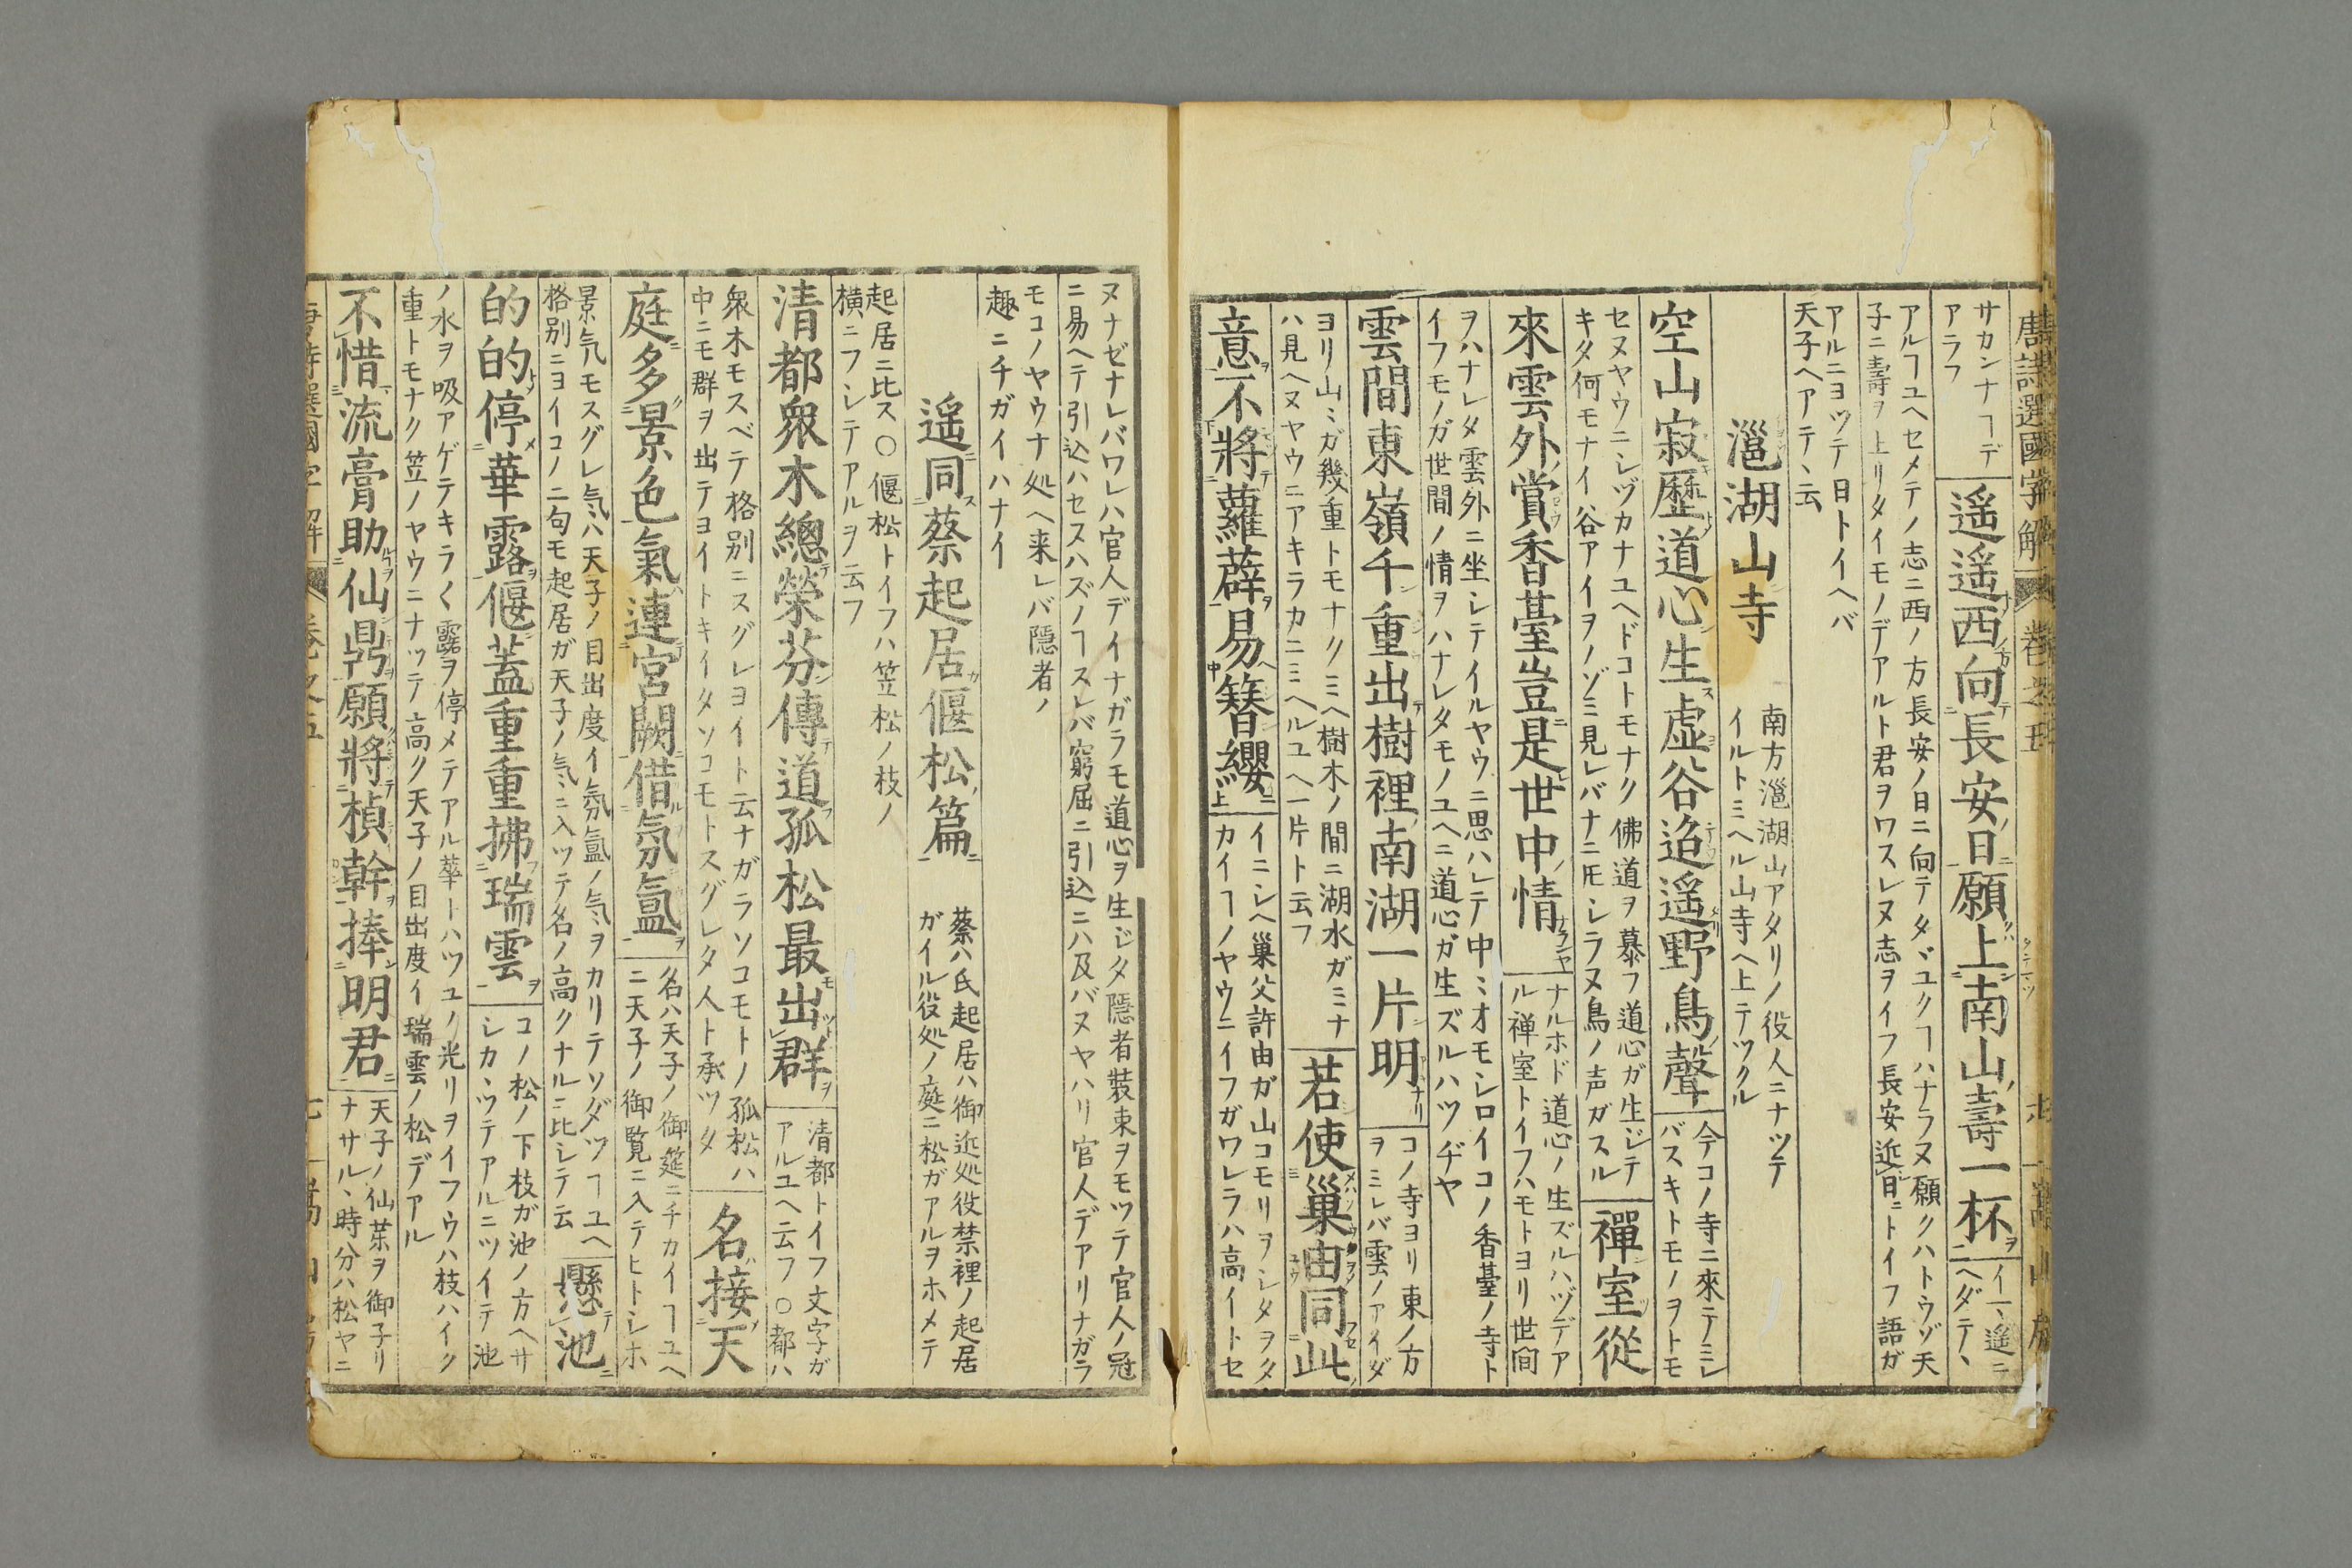 唐詩選國字解 卷之五 嵩山房
サカンナヿデ
アラフ
遥遥西向長安日願上南山壽一杯
イ一、遥ニ
ヘダテヽ
アルヿユヘセメテノ志ニ西ノ方長安ノ日ニ向テタヾユクヿハナラヌ願クハトウゾ天
子ニ壽ヲ上リタイモノデアルト君ヲワスレヌ志ヲイフ長安近日ニトイフ語ガ
アルニヨツテ日トイヘバ
天子ヘアテヽ云
邕湖山寺
南方邕湖山アタリノ役人ニナツテ
イルトミヘル山寺ヘ上テツクル
空山寂歴道心生虚谷迢遥野鳥聲
今コノ寺ニ來テミレ
バスキトモノヲトモ
セヌヤウニシヅカナユヘドコトモナク佛道ヲ慕フ道心ガ生ジテ
キタ何モナイ谷アイヲノゾミ見レバナニ𪜈シラヌ鳥ノ声ガスル
禪室從
來雲外賞香臺豈是世中情
ナルホド道心ノ生ズルハヅデア
ル禅室トイフハモトヨリ世間
ヲハナレタ雲外ニ坐シテイルヤウニ思ハレテ中ミオモシロイコノ香臺ノ寺ト
イフモノガ世間ノ情ヲハナレタモノユヘニ道心ガ生ズルハツヂヤ
雲間東嶺千重出樹裡南湖一片明
コノ寺ヨリ東ノ方
ヲミレバ雲ノアイダ
ヨリ山ミガ幾重トモナクミヘ樹木ノ間ニ湖水ガミナ
ハ見ヘヌヤウニアキラカニミヘルユヘ一片ト云フ
若使巢由同此
意不將蘿薜易簪纓
イニシヘ巢父許由ガ山コモリヲシタヲタ
カイヿノヤウニイフガワレラハ高イトセ
ヌナゼナレバワレハ官人デイナガラモ道心ヲ生ジタ隠者装束ヲモツテ官人ノ冠
ニ易ヘテ引込ハセスハズノヿスレバ窮屈ニ引込ニハ及バヌヤハリ官人デアリナガラ
モコノヤウナ処ヘ来レバ隠者ノ
趣ニチガイハナイ
遥同蔡起居偃松篇
蔡ハ氏起居ハ御近処役禁裡ノ起居
ガイル役処ノ庭ニ松ガアルヲホメテ
起居ニ比ス○偃松トイフハ笠松ノ枝ノ
横ニフシテアルヲ云フ
清都衆木總榮芬傳道孤松最出群
清都トイフ文字ガ
アルユヘ云フ○都ハ
衆木モスベテ格別ニスグレヨイト云ナガラソコモトノ孤松ハ
中ニモ群ヲ出テヨイトキイタソコモトスグレタ人ト承ツタ
名接天
庭多景色氣連宮闕借氛氳
名ハ天子ノ御筵ニチカイヿユヘ
ニ天子ノ御覧ニ入テヒトシホ
景気モスグレ気ハ天子ノ目出度イ氛氳ノ気ヲカリテソダツヿユヘ
格別ニヨイコノ二句モ起居ガ天子ノ気ニ入ツテ名ノ高クナルニ比シテ云
懸池
的的停華露偃蓋重重拂瑞雲
コノ松ノ下枝ガ池ノ方ヘサ
シカヽツテアルニツイテ池
ノ水ヲ吸アゲテキラく露ヲ停メテアル華トハツユノ光リヲイフウハ枝ハイク
重トモナク笠ノヤウニナツテ高ク天子ノ目出度イ瑞雲ノ松デアル
不惜流膏助仙鼎願將楨幹捧明君
天子ノ仙茱ヲ御子リ
ナサルヽ時分ハ松ヤニ
唐詩選國字解 卷之五 七 嵩山房